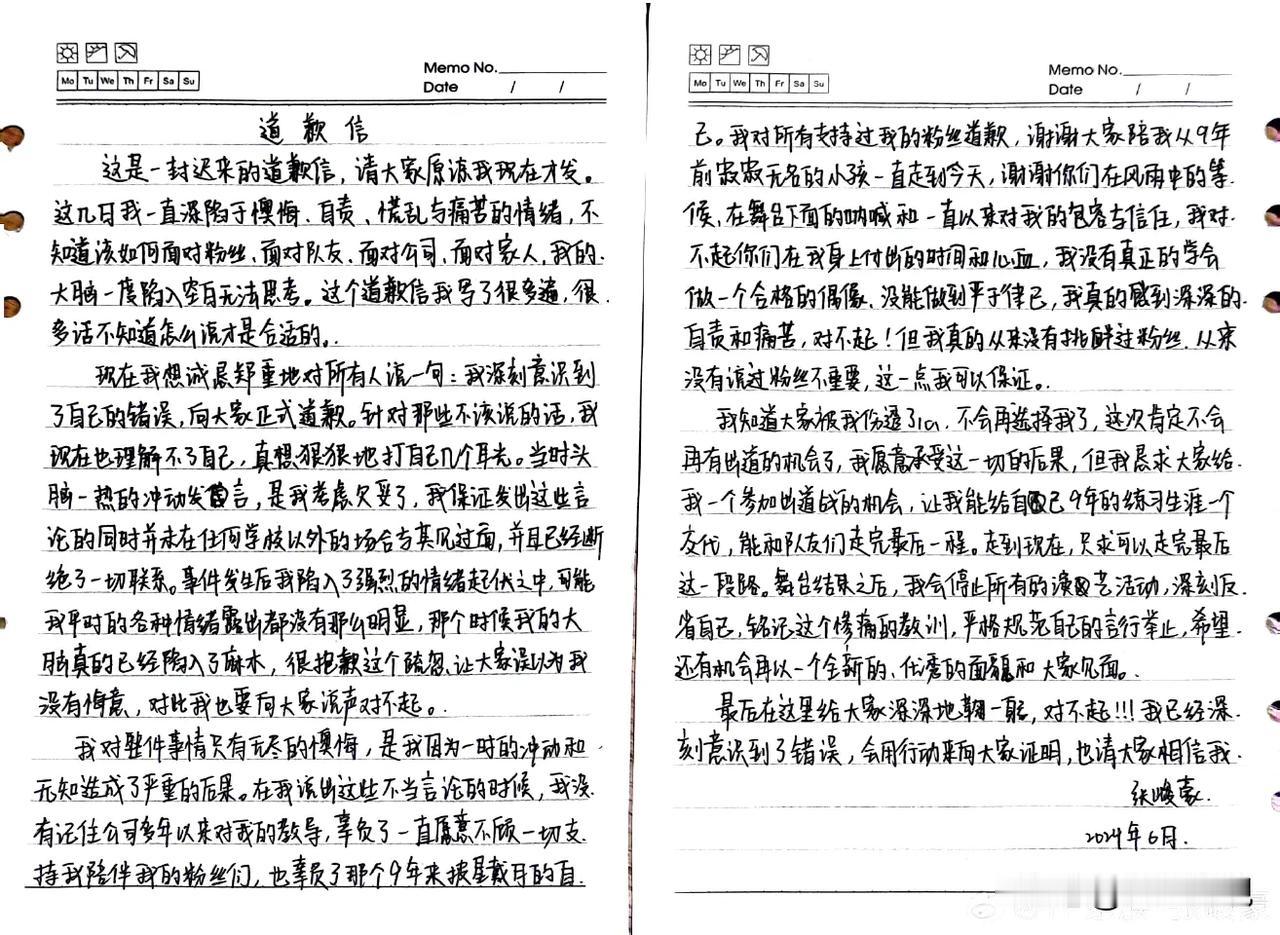 Mo Tu We Th Fr Sa Su
Memo No.
Date / /
道歉信
这是一封迟来的道歉信，请大家原谅我现在才发。
这几日我一直深陷于懊悔、自责、慌乱与痛苦的情绪，不
知道该如何面对粉丝、面对队友、面对公司、面对家人，我的
大脑一度陷入空白无法思考。这个道歉信我写了很多遍，很
多话不知道怎么说才是合适的。
现在我想诚恳郑重地对所有人说一句：我深刻意识到
了自己的错误，向大家正式道歉。针对那些不该说的话，我
现在也理解不了自己，真想狠狠地打自己几个耳光。当时头
脑一热的冲动发言，是我考虑欠妥了，我保证发出这些言
论的同时并未在任何学校以外的场合与其见过面，并且已经断
绝了一切联系。事件发生后我陷入了强烈的情绪起伏之中，可能
我平时的各种情绪露出都没有那么明显，那个时候我的大
脑真的已经陷入了麻木，很抱歉这个疏忽、让大家误以为我
没有悔意，对此我也要向大家说声对不起。
我对整件事情只有无尽的懊悔，是我因为一时的冲动和
无知造成了严重的后果。在我说出这些不当言论的时候，我没
有记住公司多年以来对我的教导，辜负了一直愿意不顾一切支
持我陪伴我的粉丝们，也辜负了那个9年来披星戴月的自
Mo Tu We Th Fr Sa Su
Memo No.
Date / /
己。我对所有支持过我的粉丝道歉，谢谢大家陪我从9年
前寂寂无名的小孩一直走到今天，谢谢你们在风雨中的等
候、在舞台下面的呐喊和一直以来对我的包容与信任，我对
不起你们在我身上付出的时间和心血，我没有真正的学会
做一个合格的偶像、没能做到严于律己，我真的感到深深的
自责和痛苦，对不起！但我真的从来没有挑衅过粉丝、从来
没有说过粉丝不重要，这一点我可以保证。
我知道大家被我伤透了心，不会再选择我了，这次肯定不会
再有出道的机会了，我愿意承受这一切的后果，但我恳求大家给
我一个参加出道战的机会，让我能给自己9年的练习生涯一个
交代，能和队友们走完最后一程。走到现在，只求可以走完最后
这一段路。舞台结束之后，我会停止所有的演艺活动，深刻反
省自己，铭记这个惨痛的教训，严格规范自己的言行举止，希望
还有机会再以一个全新的、优秀的面貌和大家见面。
最后在这里给大家深深地鞠一躬，对不起!!!我已经深
刻意识到了错误，会用行动来向大家证明，也请大家相信我。
张峻豪
2024年6月.